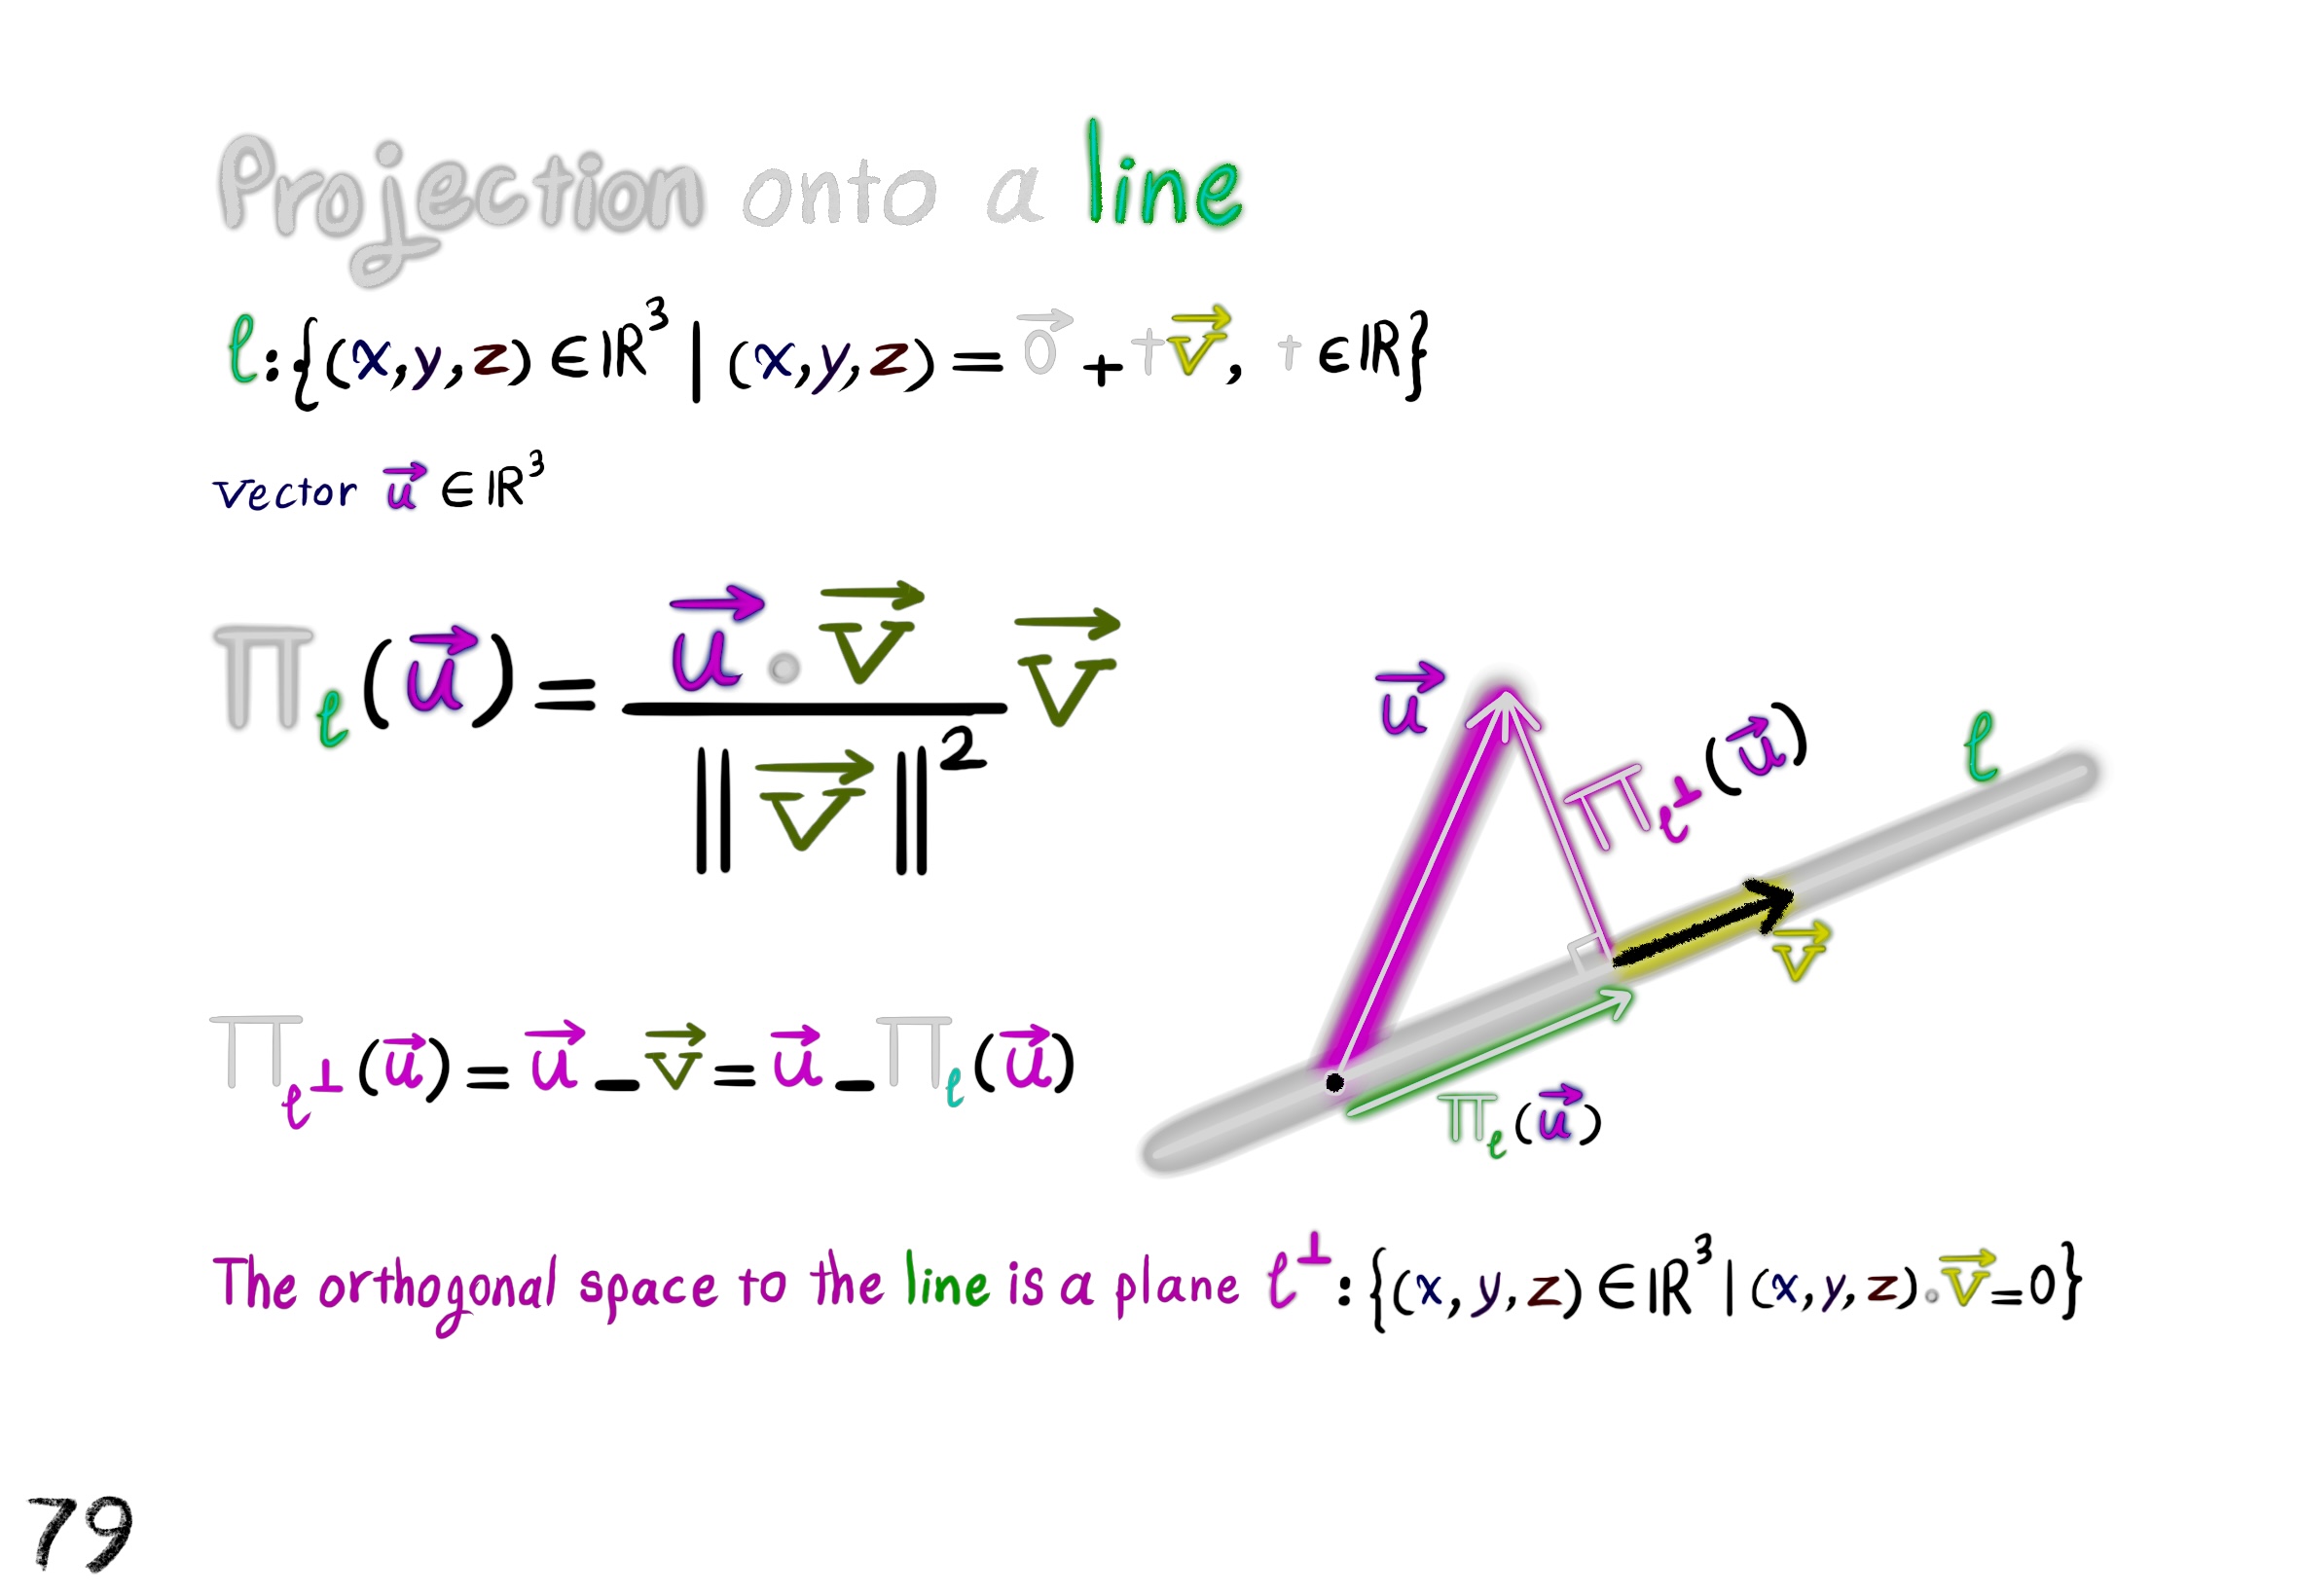 Projection onto a line
ℓ:{(x,y,z)∈ℝ³|(x,y,z)=0⃗+tv⃗, t∈ℝ}
vector u⃗∈ℝ³
Π_ℓ(u⃗)=(u⃗·v⃗)/‖v⃗‖² v⃗
u⃗
Π_ℓ⊥(u⃗)
ℓ
v⃗
Π_ℓ(u⃗)
Π_ℓ⊥(u⃗)=u⃗-v⃗=u⃗-Π_ℓ(u⃗)
The orthogonal space to the line is a plane ℓ⊥:{(x,y,z)∈ℝ³|(x,y,z)·v⃗=0}
79